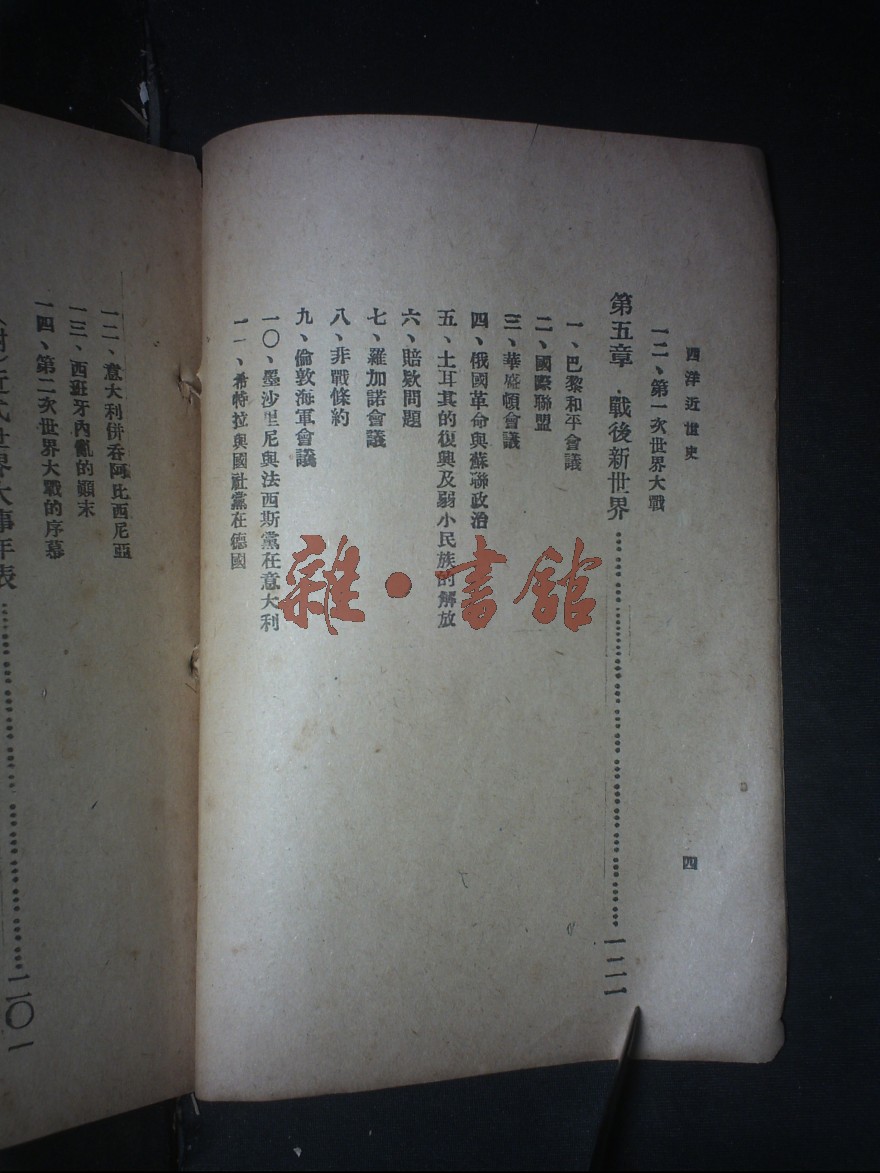 西洋近世史
四
一二、第一次世界大戰
第五章 戰後新世界……………………一二一
一、巴黎和平會議
二、國際聯盟
三、華盛頓會議
四、俄國革命與蘇聯政治
五、土耳其的復興及弱小民族的解放
六、賠款問題
七、羅加諾會議
八、非戰條約
九、倫敦海軍會議
一〇、墨沙里尼與法西斯黨在意大利
一一、希特拉與國社黨在德國
一二、意大利併吞阿比西尼亞
一三、西班牙內亂的顛末
一四、第二次世界大戰的序幕
近代世界大事年表……………………二〇一
雜·書館